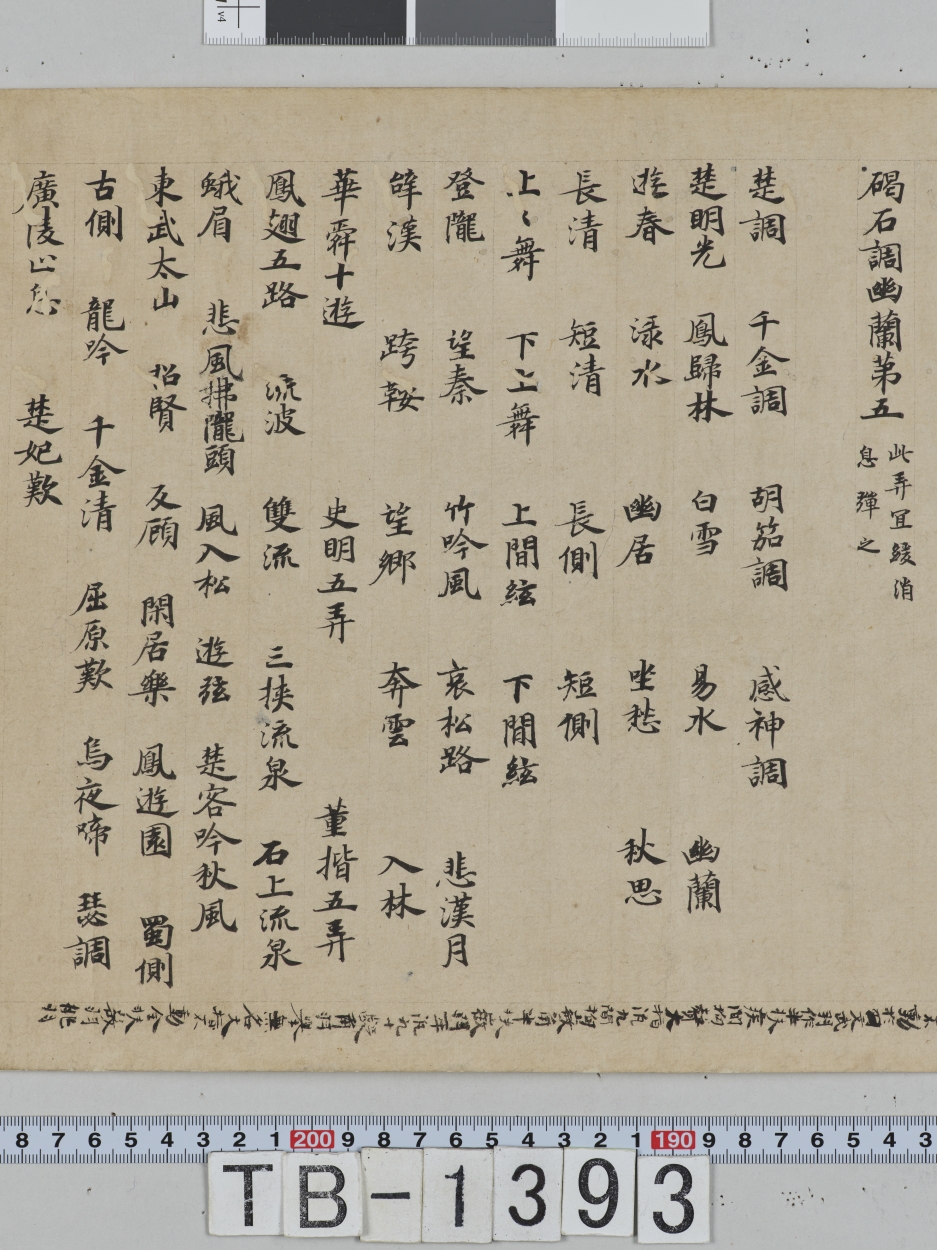 碣石調幽蘭第五 此弄宜緩消息彈之
楚調 千金調 胡笳調 感神調
楚明光 鳳歸林 白雪 易水 幽蘭
遊春 淥水 幽居 坐愁 秋思
長清 短清 長側 短側
上〻舞 下上舞 上間絃 下間絃
登隴 望秦 竹吟風 哀松路 悲漢月
辝漢 跨鞍 望鄉 奔雲 入林
華舜十遊 史明五弄 董揩五弄
鳳翅五路 流波 雙流 三挾流泉 石上流泉
蛾眉 悲風拂隴頭 風入松 遊弦 楚客吟秋風
東武太山 招賢 反顧 閑居樂 鳳遊園 蜀側
古側 龍吟 千金清 屈原歎 烏夜啼 瑟調
廣陵止息 楚妃歎
8 7 6 5 4 3 2 1 200 9 8 7 6 5 4 3 2 1 190 9 8 7 6 5 4 3
TB-1393